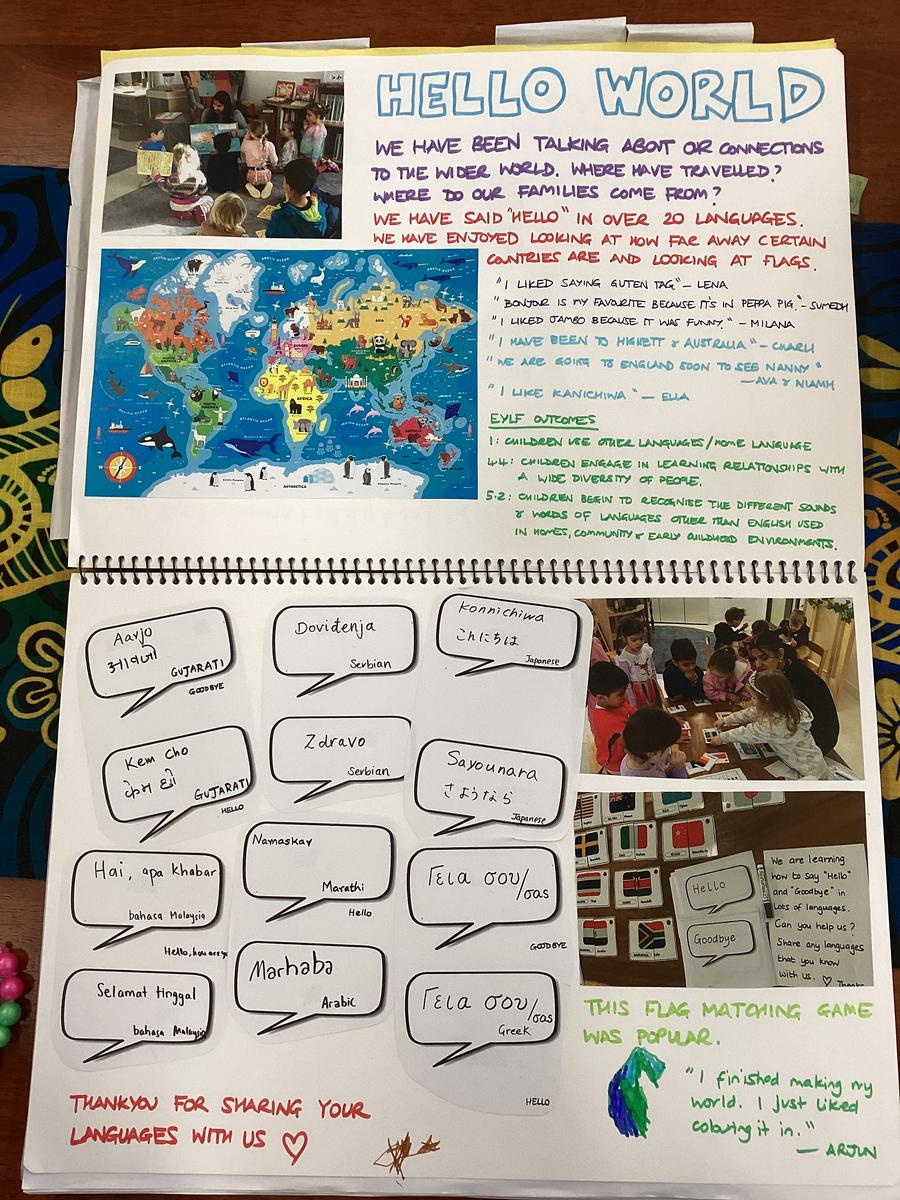 HELLO WORLD
WE HAVE BEEN TALKING ABOUT OR CONNECTIONS
TO THE WIDER WORLD. WHERE HAVE TRAVELLED?
WHERE DO OUR FAMILIES COME FROM?
WE HAVE SAID "HELLO" IN OVER 20 LANGUAGES.
WE HAVE ENJOYED LOOKING AT HOW FAR AWAY CERTAIN
COUNTRIES ARE AND LOOKING AT FLAGS.
"I LIKED SAYING GUTEN TAG" – LENA
"BONJOR IS MY FAVORITE BECAUSE IT'S IN PEPPA PIG." – SUMEDH
"I LIKED JAMBO BECAUSE IT WAS FUNNY." – MILANA
"I HAVE BEEN TO HIGHETT & AUSTRALIA" – CHARLI
"WE ARE GOING TO ENGLAND SOON TO SEE NANNY"
— AVA & NIAMH
"I LIKE KANICHIWA" – ELLA
EYLF OUTCOMES
1: CHILDREN USE OTHER LANGUAGES/HOME LANGUAGE
4.4: CHILDREN ENGAGE IN LEARNING RELATIONSHIPS WITH
A WIDE DIVERSITY OF PEOPLE.
5.2: CHILDREN BEGIN TO RECOGNISE THE DIFFERENT SOUNDS
& WORDS OF LANGUAGES OTHER THAN ENGLISH USED
IN HOMES, COMMUNITY & EARLY CHILDHOOD ENVIRONMENTS.
ARCTIC OCEAN
ARCTIC OCEAN
EUROPE
AFRICA
ATLANTIC OCEAN
PACIFIC OCEAN
ANTARCTICA
Aavjo
આવજો
GUJARATI
GOODBYE
Doviđenja
Serbian
Konnichiwa
こんにちは
Japanese
Kem cho
કેમ છો
GUJARATI
HELLO
Zdravo
Serbian
Sayounara
さようなら
Japanese
Hai, apa khabar
bahasa Malaysia
Hello, how are yo
Namaskar
Marathi
Hello
Γεια σου/σας
GOODBYE
Selamat tinggal
bahasa Malaysia
Marhaba
Arabic
Γεια σου/σας
Greek
HELLO
Hello
Goodbye
We are learning
how to say "Hello"
and "Goodbye" in
lots of languages.
Can you help us?
Share any languages
that you know
with us. ♡
Thanks
THIS FLAG MATCHING GAME
WAS POPULAR.
"I finished making my
world. I just liked
colouring it in."
— ARJUN
THANKYOU FOR SHARING YOUR
LANGUAGES WITH US ♡